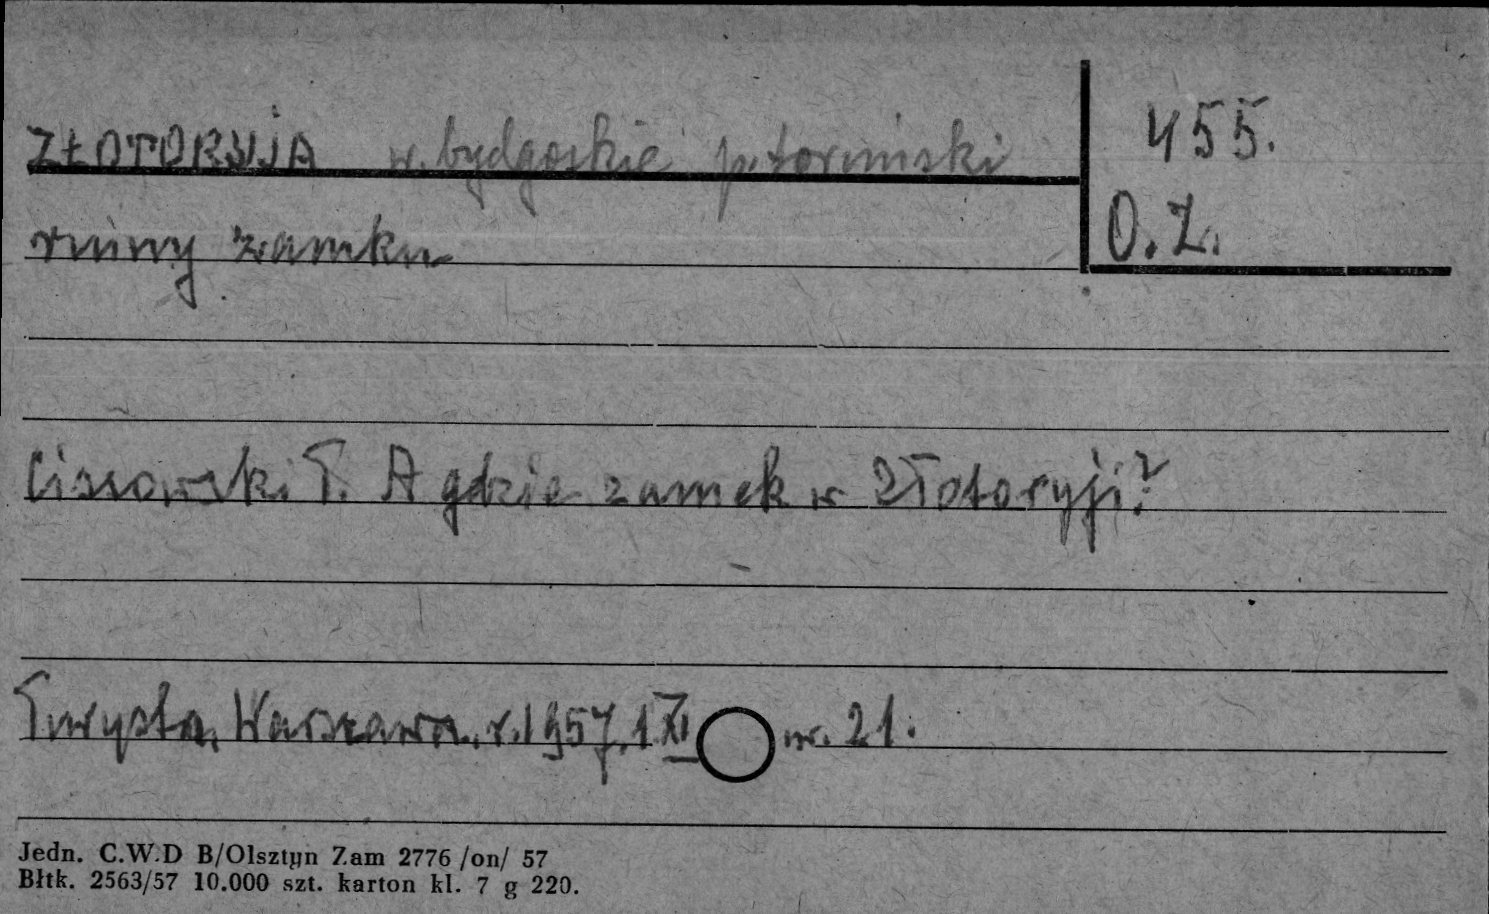 ZŁOTORYJA w. bydgoskie p. toruński 455.
O.Z.
ruiny zamku
Cissowski T. A gdzie zamek w Złotoryji?
Turysta, Warszawa. r. 1957. 1 XI nr. 21.
Jedn. C.W.D B/Olsztyn Zam 2776 /on/ 57
Błtk. 2563/57 10.000 szt. karton kl. 7 g 220.